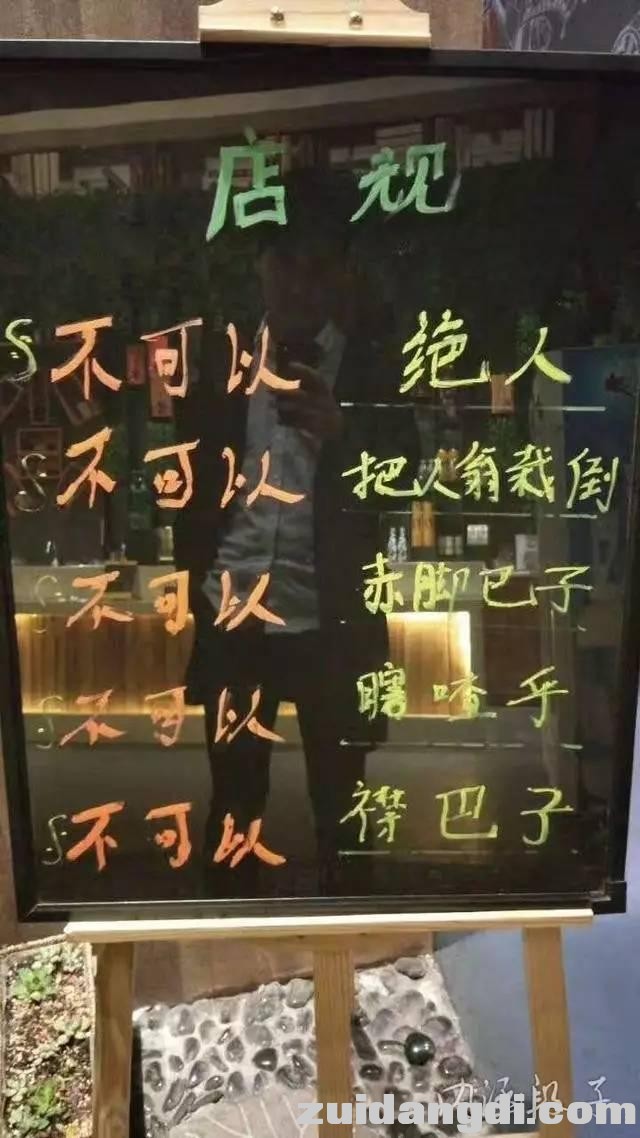 店规
不可以 绝人
不可以 把人翁栽倒
不可以 赤脚巴子
不可以 瞎喳乎
不可以 襟巴子
内涵段子
zuidangdi.com